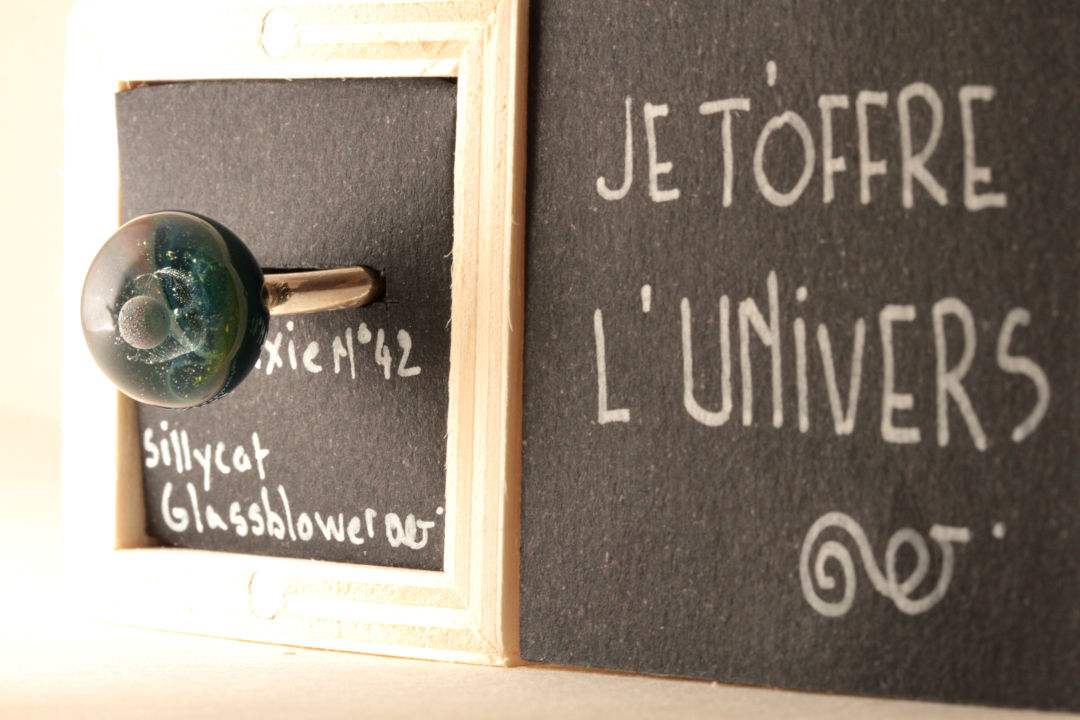 N°42
sillycat
Glassblower
JE T'OFFRE
L'UNIVERS